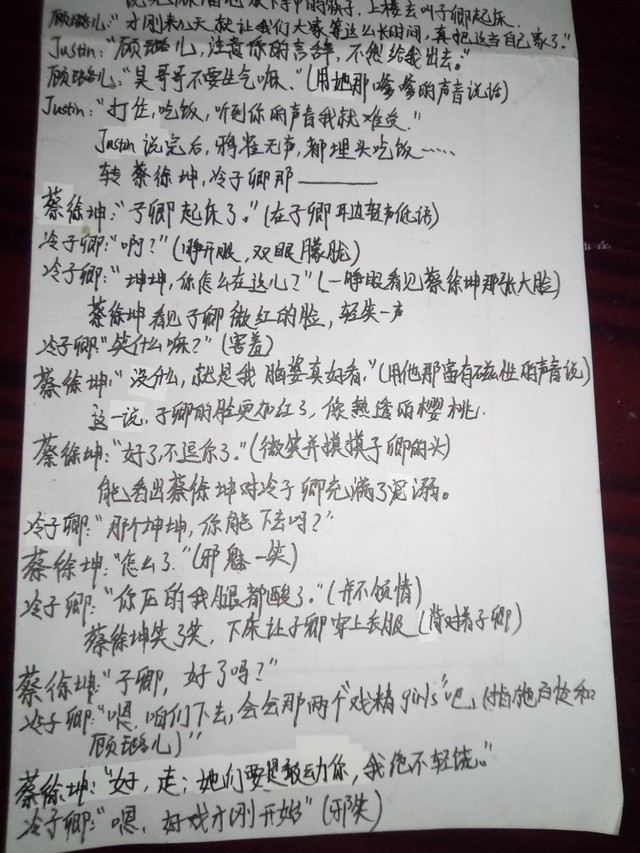 放下手中的筷子，上楼去叫子卿起床.
顾璐儿："才刚来几天就让我们大家等这么长时间，真把这当自己家了。"
Justin："顾璐儿，注意你的言辞，不然给我出去。"
顾璐儿："昊哥哥不要生气嘛。"(用她那嗲嗲的声音说话)
Justin："打住，吃饭，听到你的声音我就难受."
Justin说完后，鸦雀无声，都埋头吃饭……
转 蔡徐坤，冷子卿那————
蔡徐坤："子卿起床了。"(在子卿耳边轻声低语)
冷子卿："啊？"(睁开眼，双眼朦胧)
冷子卿："坤坤，你怎么在这儿？"(一睁眼看见蔡徐坤那张大脸)
蔡徐坤看见子卿微红的脸，轻笑一声
冷子卿"笑什么嘛？"(害羞)
蔡徐坤："没什么，就是我脑婆真好看。"(用他那富有磁性的声音说)
这一说，子卿的脸更加红了，像熟透的樱桃.
蔡徐坤："好了，不逗你了。"(微笑并摸摸子卿的头)
能看出蔡徐坤对冷子卿充满了宠溺。
冷子卿："那个坤坤，你能下去吗？"
蔡徐坤："怎么了."(邪魅一笑)
冷子卿："你压的我腿都酸了。"(并不领情)
蔡徐坤笑了笑，下床让子卿穿上衣服(背对着子卿)
蔡徐坤："子卿，好了吗？"
冷子卿："嗯，咱们下去，会会那两个"戏精girls"吧，(指施百桧和
顾璐儿)"
蔡徐坤："好，走；她们要是敢动你，我绝不轻饶。"
冷子卿："嗯，好戏才刚开始"(邪笑)